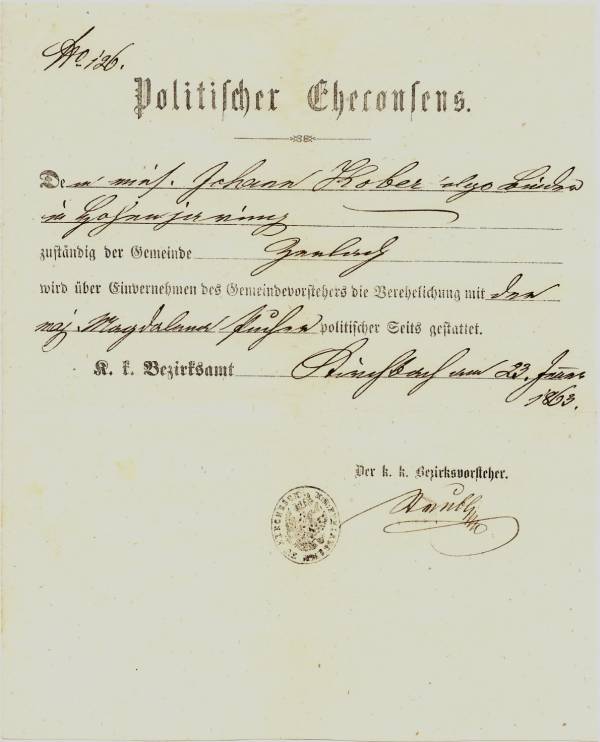 No 126.
Politischer Eheconsens.
Dem minj. Johann Kober vlgo Binder
in
zuständig der Gemeinde Zerlach
wird über Einvernehmen des Gemeindevorstehers die Verehelichung mit der
maj. Magdalena Pucher politischer Seits gestattet.
K. k. Bezirksamt Kirchbach am 23. Jänner
1863.
Der k. k. Bezirksvorsteher.